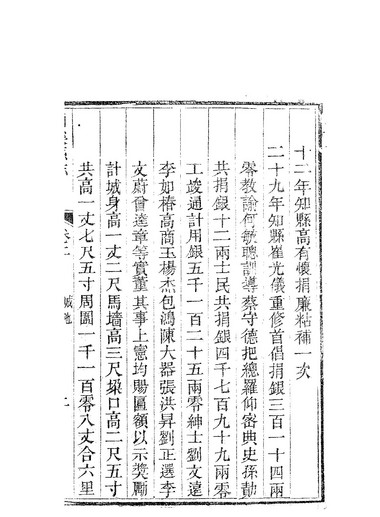 十二年知縣高有懷捐廉粘補一次
二十九年知縣崔光儀重修首倡捐銀三百一十四兩
零教諭何敏聰訓導蔡守德把總羅仰密典史孫勳
共捐銀十二兩士民共捐銀四千七百九十九兩零
工竣通計用銀五千一百二十五兩零紳士劉文遠
李如椿高商玉楊杰包鴻陳大器張洪昇劉正選李
文蔚曾達章等實董其事上憲均賜匾額以示奬勵
計城身高一丈二尺馬墻高三尺垜口高二尺五寸
共高一丈七尺五寸周圍一千一百零八丈合六里
城池